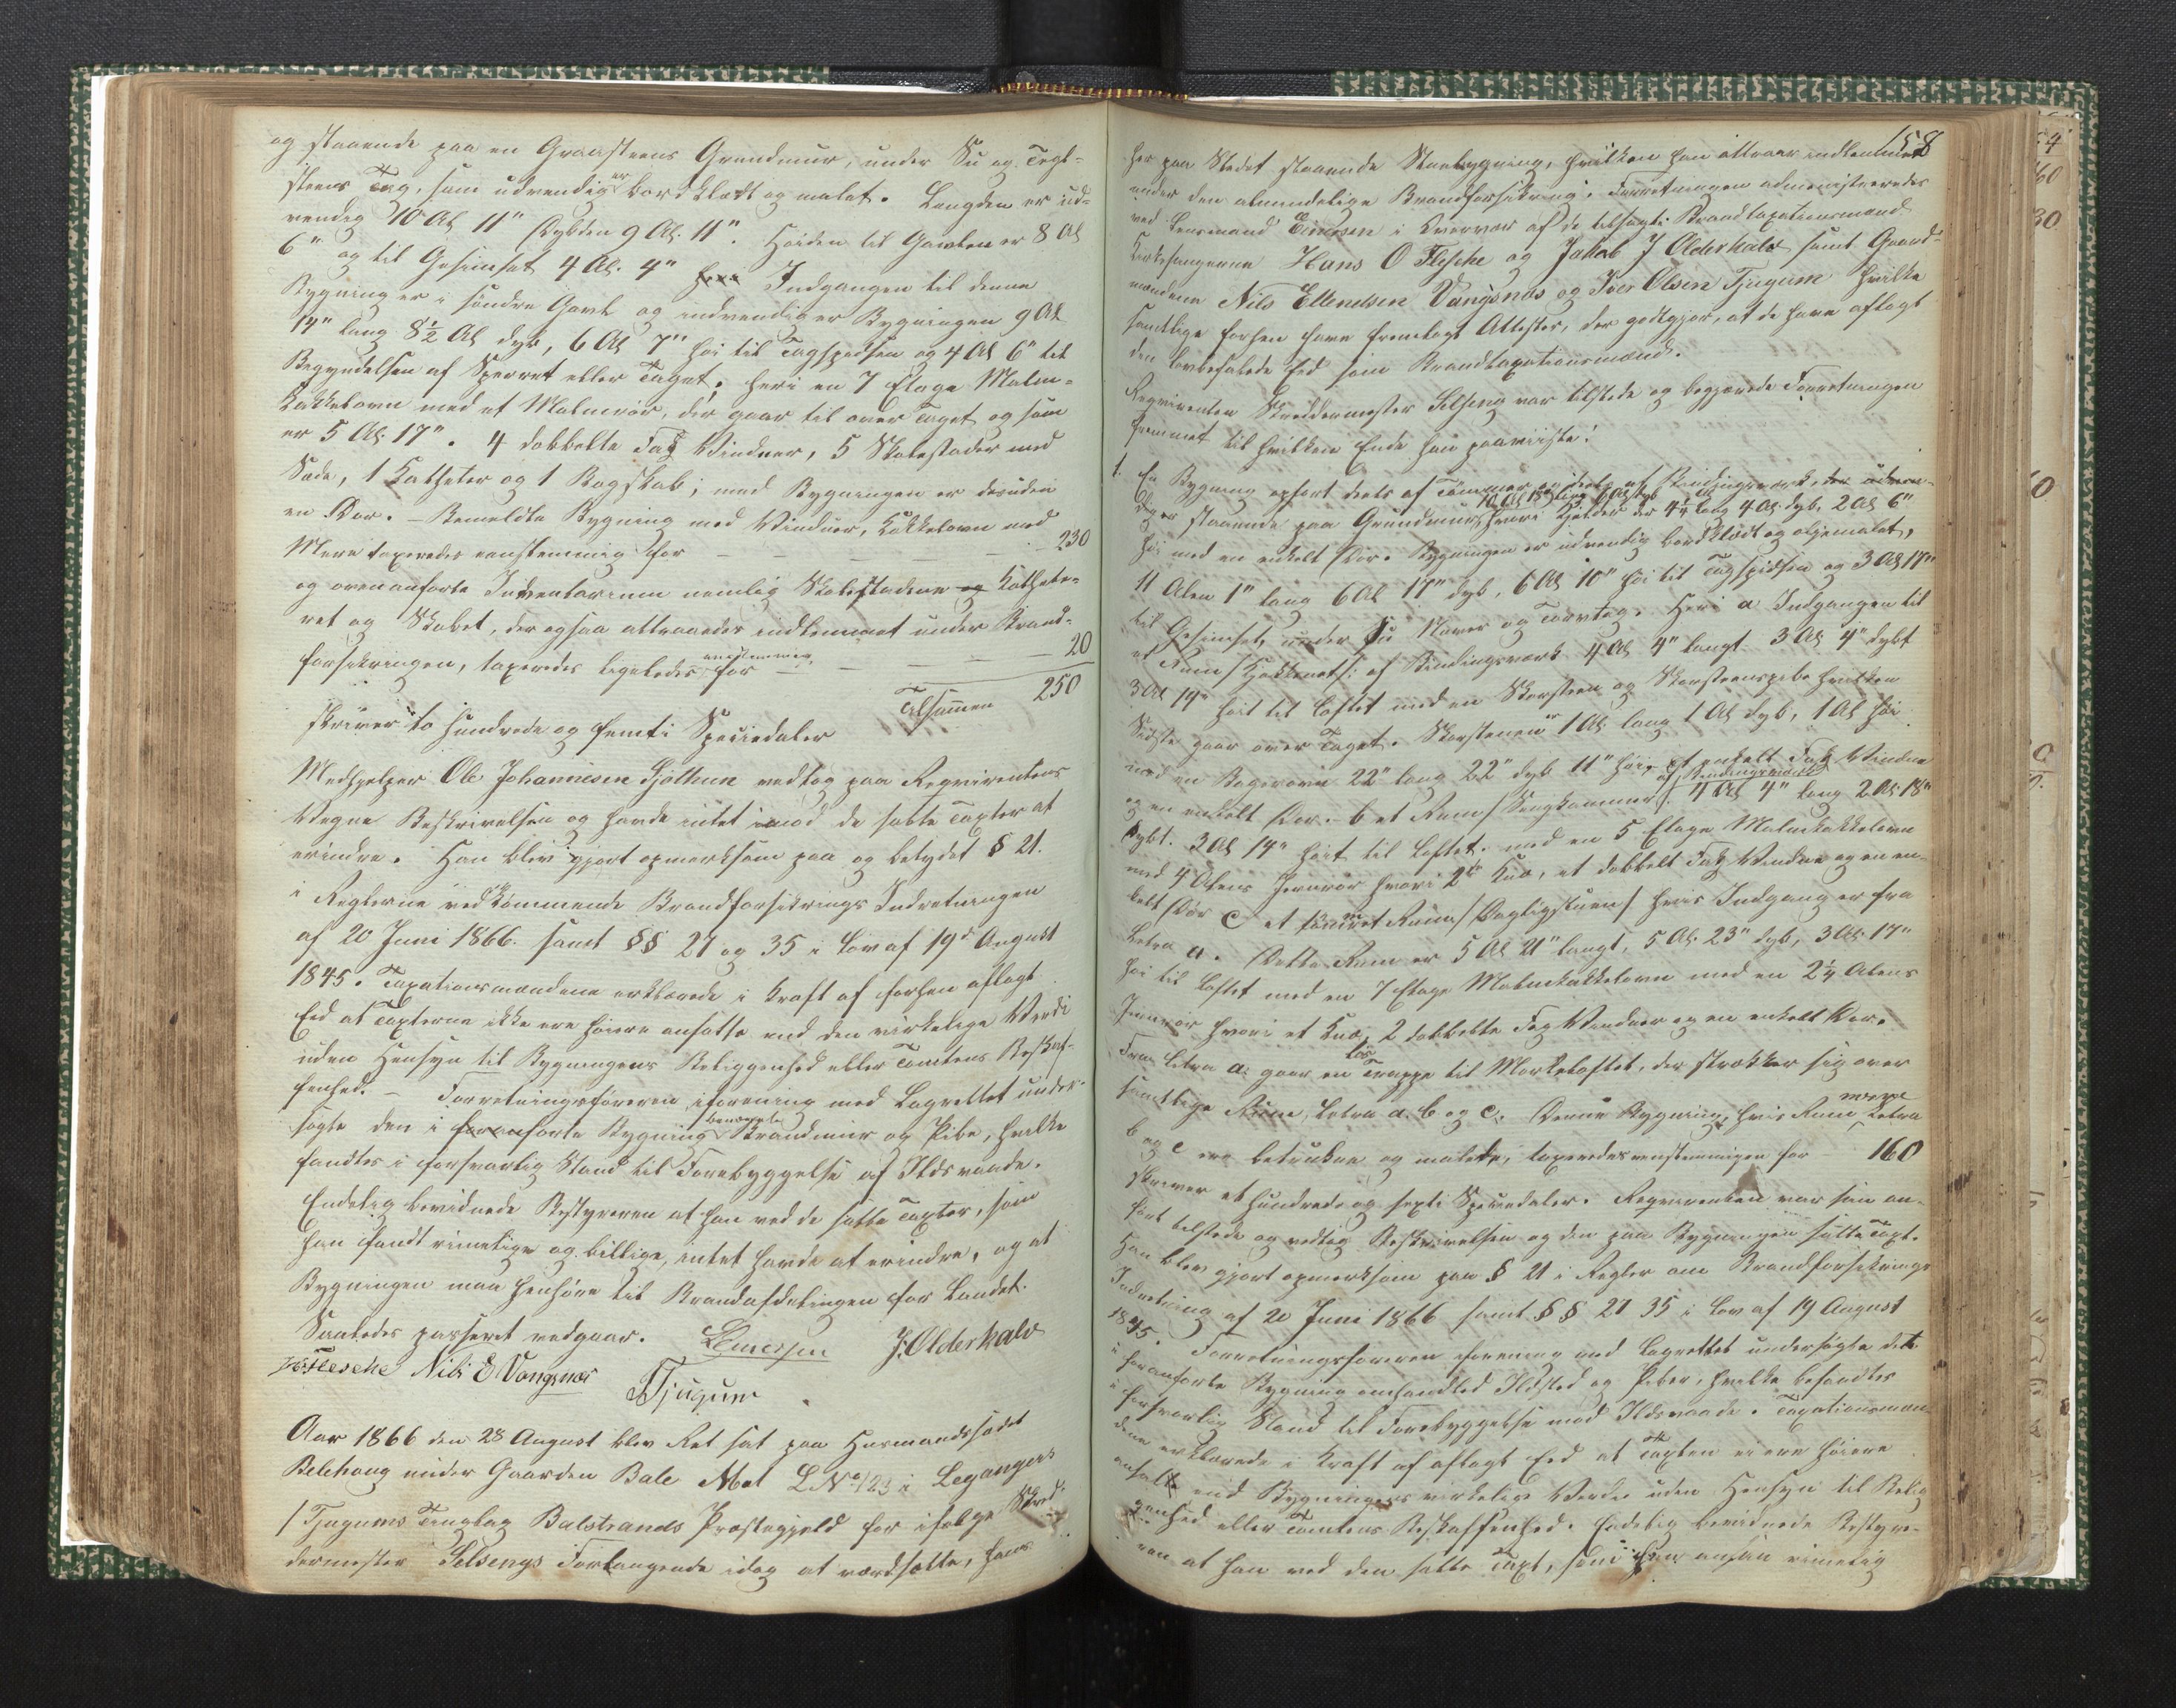 og staaende paa en Graasteens Grundmuur, under Su og Tegl-
steens Tag, som udvendig er bordklædt og malet. Længden er ud-
vendig 10 Al 11" Dybden 9 Al. 11". Høiden til Gavlen er 8 Al
6" og til Gesimset 4 Al. 4" Indgangen til denne
Bygning er i søndre Gavl og indvendig er Bygningen 9 Al
14" lang 8½ Al dyb, 6 Al 7" høi til Tagspidsen og 4 Al 6" til
Begyndelsen af Sperret eller Taget; heri en 7 Etage Malm-
kakkelovn med et Malmrør, der gaar til over Taget og som
er 5 Al. 17". 4 dobbelte Fag Vinduer, 5 Skolestader med
Sæde, 1 Katheter og 1 Bogskab; med Bygningen er desuden
en Dør. - Bemeldte Bygning med Vinduer, Kakkelovn med
Mere taxeredes eenstemmig for - - - - 230
og ovenanførte Inventarium nemlig Skolestadene og Kathete-
ret og Skabet, der ogsaa attraaedes indlemmet under Brand-
forsikringen, taxeredes ligeledes eenstemmig for - - - - 20
Tilsammen 250
skriver to hundrede og femti Speciedaler
Medhjelper Ole Johannesen Sjøthun vedtog paa Reqvirentens
Vegne Beskrivelsen og havde intet imod de satte Taxter at
erindre. Han blev gjort opmerksom paa og betydet § 21.
i Reglerne vedkommende Brandforsikrings Indretningen
af 20 Juni 1866. samt §§ 27 og 35 i Lov af 19de August
1845. Taxationsmændene erklærede i Kraft af forhen aflagt
Eed at Taxterne ikke ere høiere ansatte end den virkelige Verdi
uden Hensyn til Bygningens Beliggenhed eller Tomtens Beskaf-
fenhed. - Forretningsføreren iforening med Lagrettet under-
søgte den i foranførte Bygning benævnte Brandmuur og Pibe, hvilke
fandtes i forsvarlig Stand til Forebyggelse af Ildsvaade.
Endelig bevidnede Bestyreren at han ved de satte Taxter, som
han fandt rimelige og billige, intet havde at erindre, og at
Bygningen maa henhøre til Brandafdelingen for Landet.
Saaledes passeret vedgaar. LEinersen J. Olderkalv
HOFlesche Nils E Vangsnæs
ITjugum
Aar 1866 den 28 August blev Ret sat paa Husmandssædet
Belehaug under Gaarden Bale Mat LNo 123 i Leganger
/Tjugums Tinglag Balestrands Præstegjæld for ifølge Skræd-
dermester Selsengs Forlangende idag at værdsætte, hans
158
her paa Stedet staaende Stuebygning, hvilken han attraar indlemmet
under den almindelige Brandforsikring. Forretningen administreredes
ved Lensmand Einersen i Overvær af de tilsagte Brandtaxationsmænd
Kirkesangerne Hans O Flesche og Jakob J Olderkalv samt Gaard-
mændene Nils Ellendsen Vangsnæs og Iver Olsen Tjugum hvilke
samtlige forhen have fremlagt Attester, der godtgjør, at de have aflagt
den lovbefalede Eed som Brandtaxationsmænd.
Reqvirenten Skreddermester Selseng var tilstede og begjærede Forretningen
fremmet til hvilken Ende han paaviiste:
1. En Bygning opført deels af Tømmer og deels af Bindingsverk,
staaende paa Grundmuur, hvori Kjelder der 4¼ Al lang 4 Al. dyb, 2 Al 6"
høi med en enkelt Dør. Bygningen er udvendig bordklædt og oljemalet,
11 Alen 1" lang 6 Al 17" dyb, 6 Al 10" høi til Tagspidsen og 3 Al 17"
til Gesimset, under Su Næver og Torvtag. Heri a Indgangen til
et Rum /Kjøkkenet/ af Bindingsverk 4 Al 4" langt 3 Al 4" dybt
3 Al 14" høit til Loftet med en Skorsteen og Skorsteenspibe hvilken
Sidste gaar over Taget. Skorstenen er 1 Al. lang 1 Al dyb, 1 Al høi
med en Bagerovn 22" lang 22" dyb 11" høi, et enkelt Fag Vindue
og en enkelt Dør. - b et Rum /Sengkammer/ af Bindingsverk 4 Al 4" lang 2 Al. 18"
dybt. 3 Al 14" høit til Loftet. med en 5 Etage Malmkakkelovn
med 4 Alens Jernrør hvori 2de Knæ, et dobbelt Fag Vindue og en en-
kelt Dør c et tømret Rum /Dagligstuen/ hvis Indgang er fra
Letra a. Dette Rum er 5 Al 21" langt, 5 Al. 23" dyb, 3 Al. 17"
høi til Loftet med en 7 Etage Malmkakkelovn med en 2¼ Alens
Jernrør hvori et Knæ, 2 dobbelte Fag Vinduer og en enkelt Dør.
Fra Litra a. gaar en løs Trappe til Mørkeloftet, der strækker sig over
samtlige Rum, Letra a. b og c. Denne Bygning, hvis Rum Letra
b og c ere betrukne og malede, taxeredes eenstemmigen for 160
skriver et hundrede og sexti Speciedaler. Reqvirenten var som an-
ført tilstede og vedtog Beskrivelsen og den paa Bygningen satte Taxt.
Han blev gjort opmerksom paa § 21 i Regler om Brandforsikrings
Indretning af 20 Juni 1866 samt §§ 27 35 i Lov af 19 August
1845. Forretningsføreren iforening med Lagrettet undersøgte det
i foranførte Bygning omhandled Ildsted og Piber, hvilke befandtes
i forsvarlig Stand til Forebyggelse mod Ildsvaade. Taxationsmæn
dene erklærede i Kraft af aflagt Eed at Taxten ei ere høiere
ansatt end Bygningens virkelige Verdi uden Hensyn til Belig
genhed eller Tomtens Beskaffenhed. Endelig bevidnede Bestyre-
ren at han ved den satte Taxt, som han ansaa rimelig